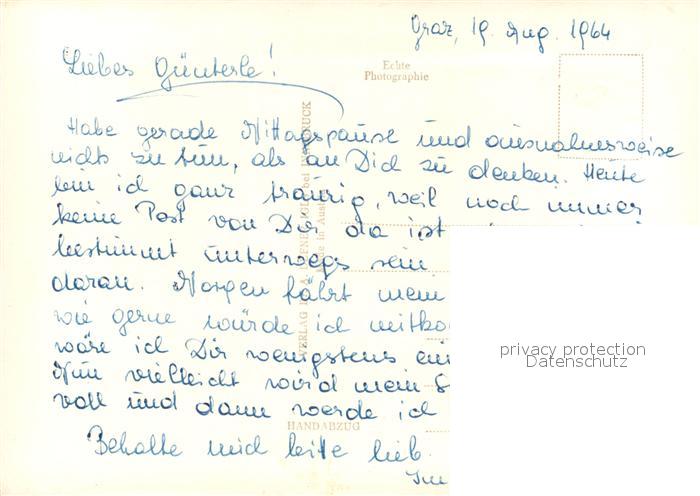 Graz, 19. Aug. 1964
Liebes Günterle!
Echte
Photographie
Habe gerade Mittagspause und ausnahmsweise
nichts zu tun, als an Dich zu denken. Heute
bin ich ganz traurig, weil noch immer
keine Post von Dir da ist
bestimmt unterwegs sein
daran. Morgen fährt mein
wie gerne würde ich mitko
wäre ich Dir wenigstens ein
Nun vielleicht wird mein S
voll und dann werde ich
HANDABZUG
Behalte mich bitte lieb.
privacy protection
Datenschutz